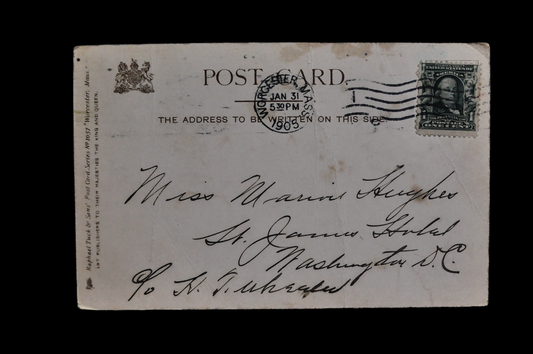 POST CARD
WORCESTER, MASS.
JAN 31
5 30 PM
1905
1
THE ADDRESS TO BE WRITTEN ON THIS SIDE
Miss Marion Hughes
St. James Hotel
Washington D.C.
c/o H. T. Wheeler
Raphael Tuck & Sons' Post Card Series No 1037 "Worcester, Mass."
ART PUBLISHERS TO THEIR MAJESTIES THE KING AND QUEEN.